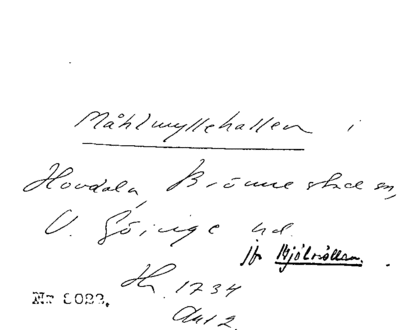 Måhlmyllehallen i
Hovdala, Brönnestad sn,
V. Göinge hd.
jfr Mjölnöllan.
Hh. 1734
Akt 2.
Nr 8022.